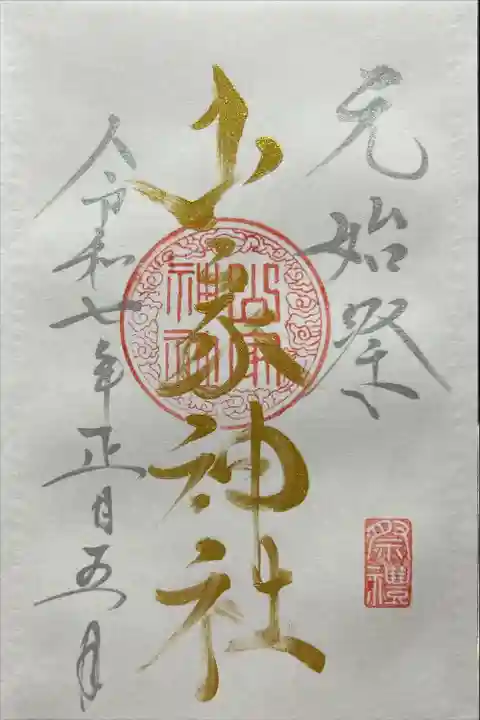 元始祭
山家神社
令和七年正月五日
山家神社
祭禮